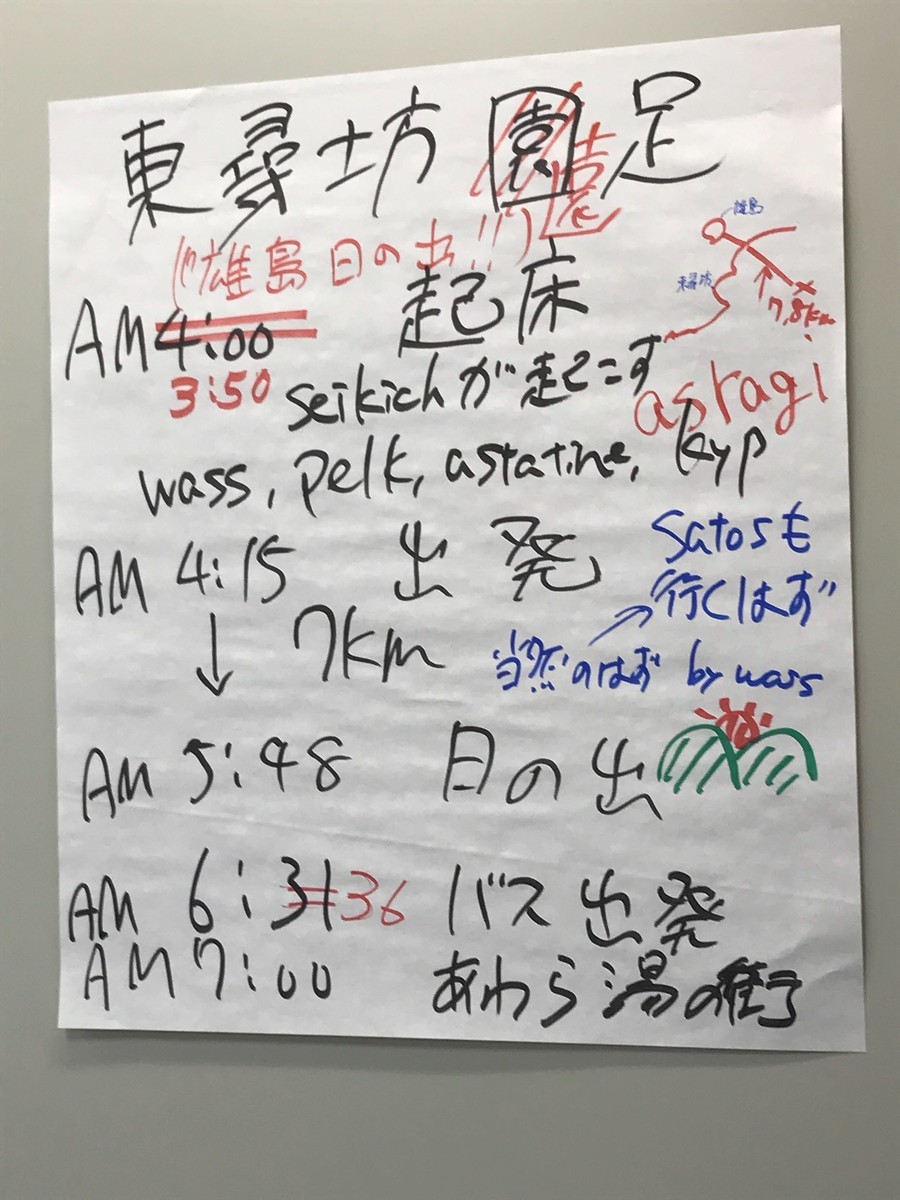 東尋坊 園足
遠
(雄島 日の出!!)
雄島
東尋坊
7.8km
AM 4:00 起床
3:50 seikichが起こす
asragi
wass, pelk, astatine, kyp
AM 4:15 出発
satosも
行くはず
↓ 7km
当然のはず by wass
AM 5:48 日の出
AM 6:31 36 バス出発
AM 7:00 あわら湯の街